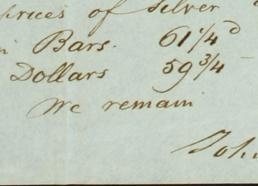 prices of Silver
in Bars. 61 1/4 d
Dollars 59 3/4 –
We remain
John